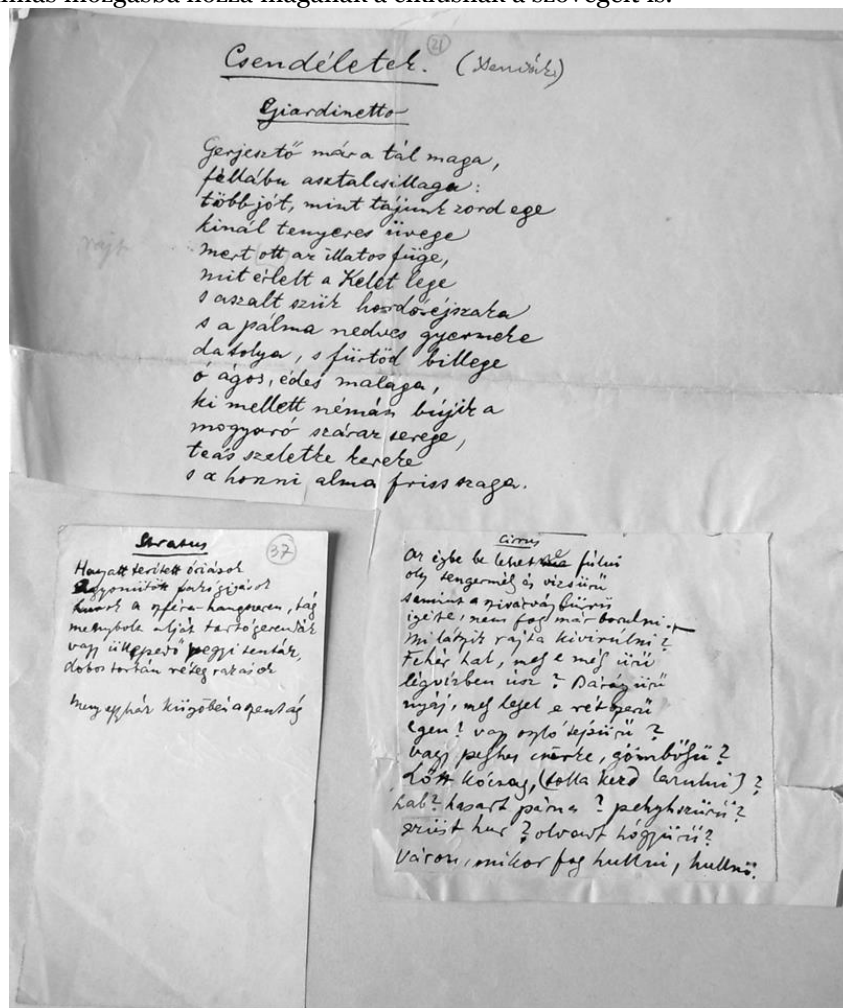 mas mozgásba hozza magának a ciklusnak a szövegeit is.
21
Csendéletek.
Giardinetto
Gerjesztő már a tál maga,
féllábu asztalcsillaga:
több jót, mint tájunk zord ege
kinál tenyeres üvege
mert ott az illatos füge,
mit érlelt a Kelet lege
s aszalt szük hordóéjszaka
s a pálma nedves gyermeke
datolya, s fürtöd billege
ó ágos, édes malaga,
ki mellett némán bújik a
mogyoró száraz serege,
teás szeletke kereke
s a honni alma friss szaga.
rajz
Stratus
37
Hanyatt terített óriások
a szféra-hangszeren, tág
menybolt alját tartógerendák
vagy ülepedő hegyi tenták,
dobostortán réteg rakások
Cirrus
Az égbe be lehet fúlni
oly tengermély és vízsűrű
semmint a szivárvány
igéite, nem fog már borulni.
Mi látszik rajta kivirulni?
Fehér hal, mely e még űrű
légvízben úsz? Bárány
nyáj, mely legel e rétszerű
égen? vagy oszló tejsűrű?
vagy pelyhes csirke, gömbölyű?
Lőtt kócsag, (tolla kezd lazulni)?
hab? hasadt párna? pehelyszűrű?
ezüst hur? olvadt hógyűrű?
Várom, mikor fog hullni, hullni.